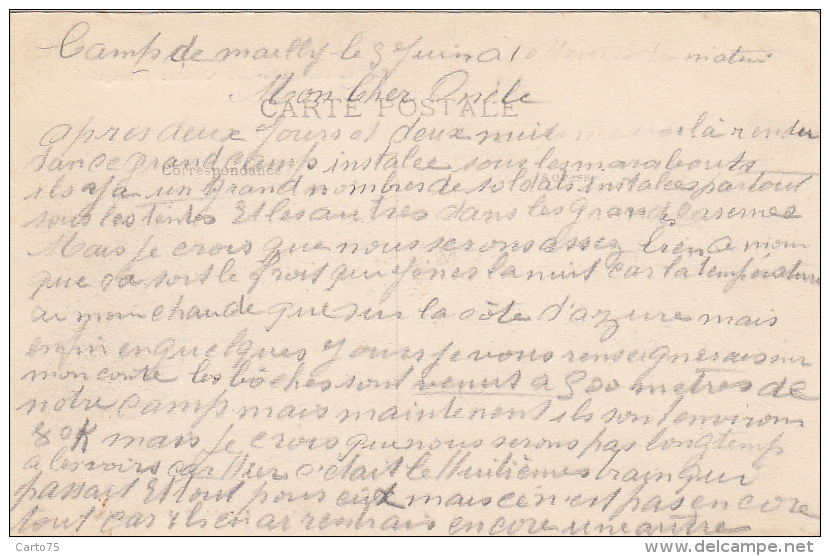 Camp de mailly le 3 Juin a 10 heures du matin
Mon Cher Oncle
CARTE POSTALE
apres deux Jours et deux nuit me voila rendu
dans ce grand camp instalee sous les marabouts
Correspondance
ils y a un Grand nombres de soldats instalees partout
sous les tentes Et les autres dans les Grandes casernes
Mais Je crois que nous serons assez bien a moin
que sa sort le froit qui Gènes la nuit car la température
ai moin chaude que sur la côte d'azure mais
enfin en quelques Jours Je vous renseignerais sur
mon conte les bôches sont venut a 500 metres de
notre camp mais maintenent ils sont environ
80K mais Je crois que nous serons pas longtemp
a les voirs car hier c'était le huitièmes train qui
passait Et tout pour eux mais ce n'est pas encore
tout car ils en arrentrais encore une autre
Carto75
delcampe.net